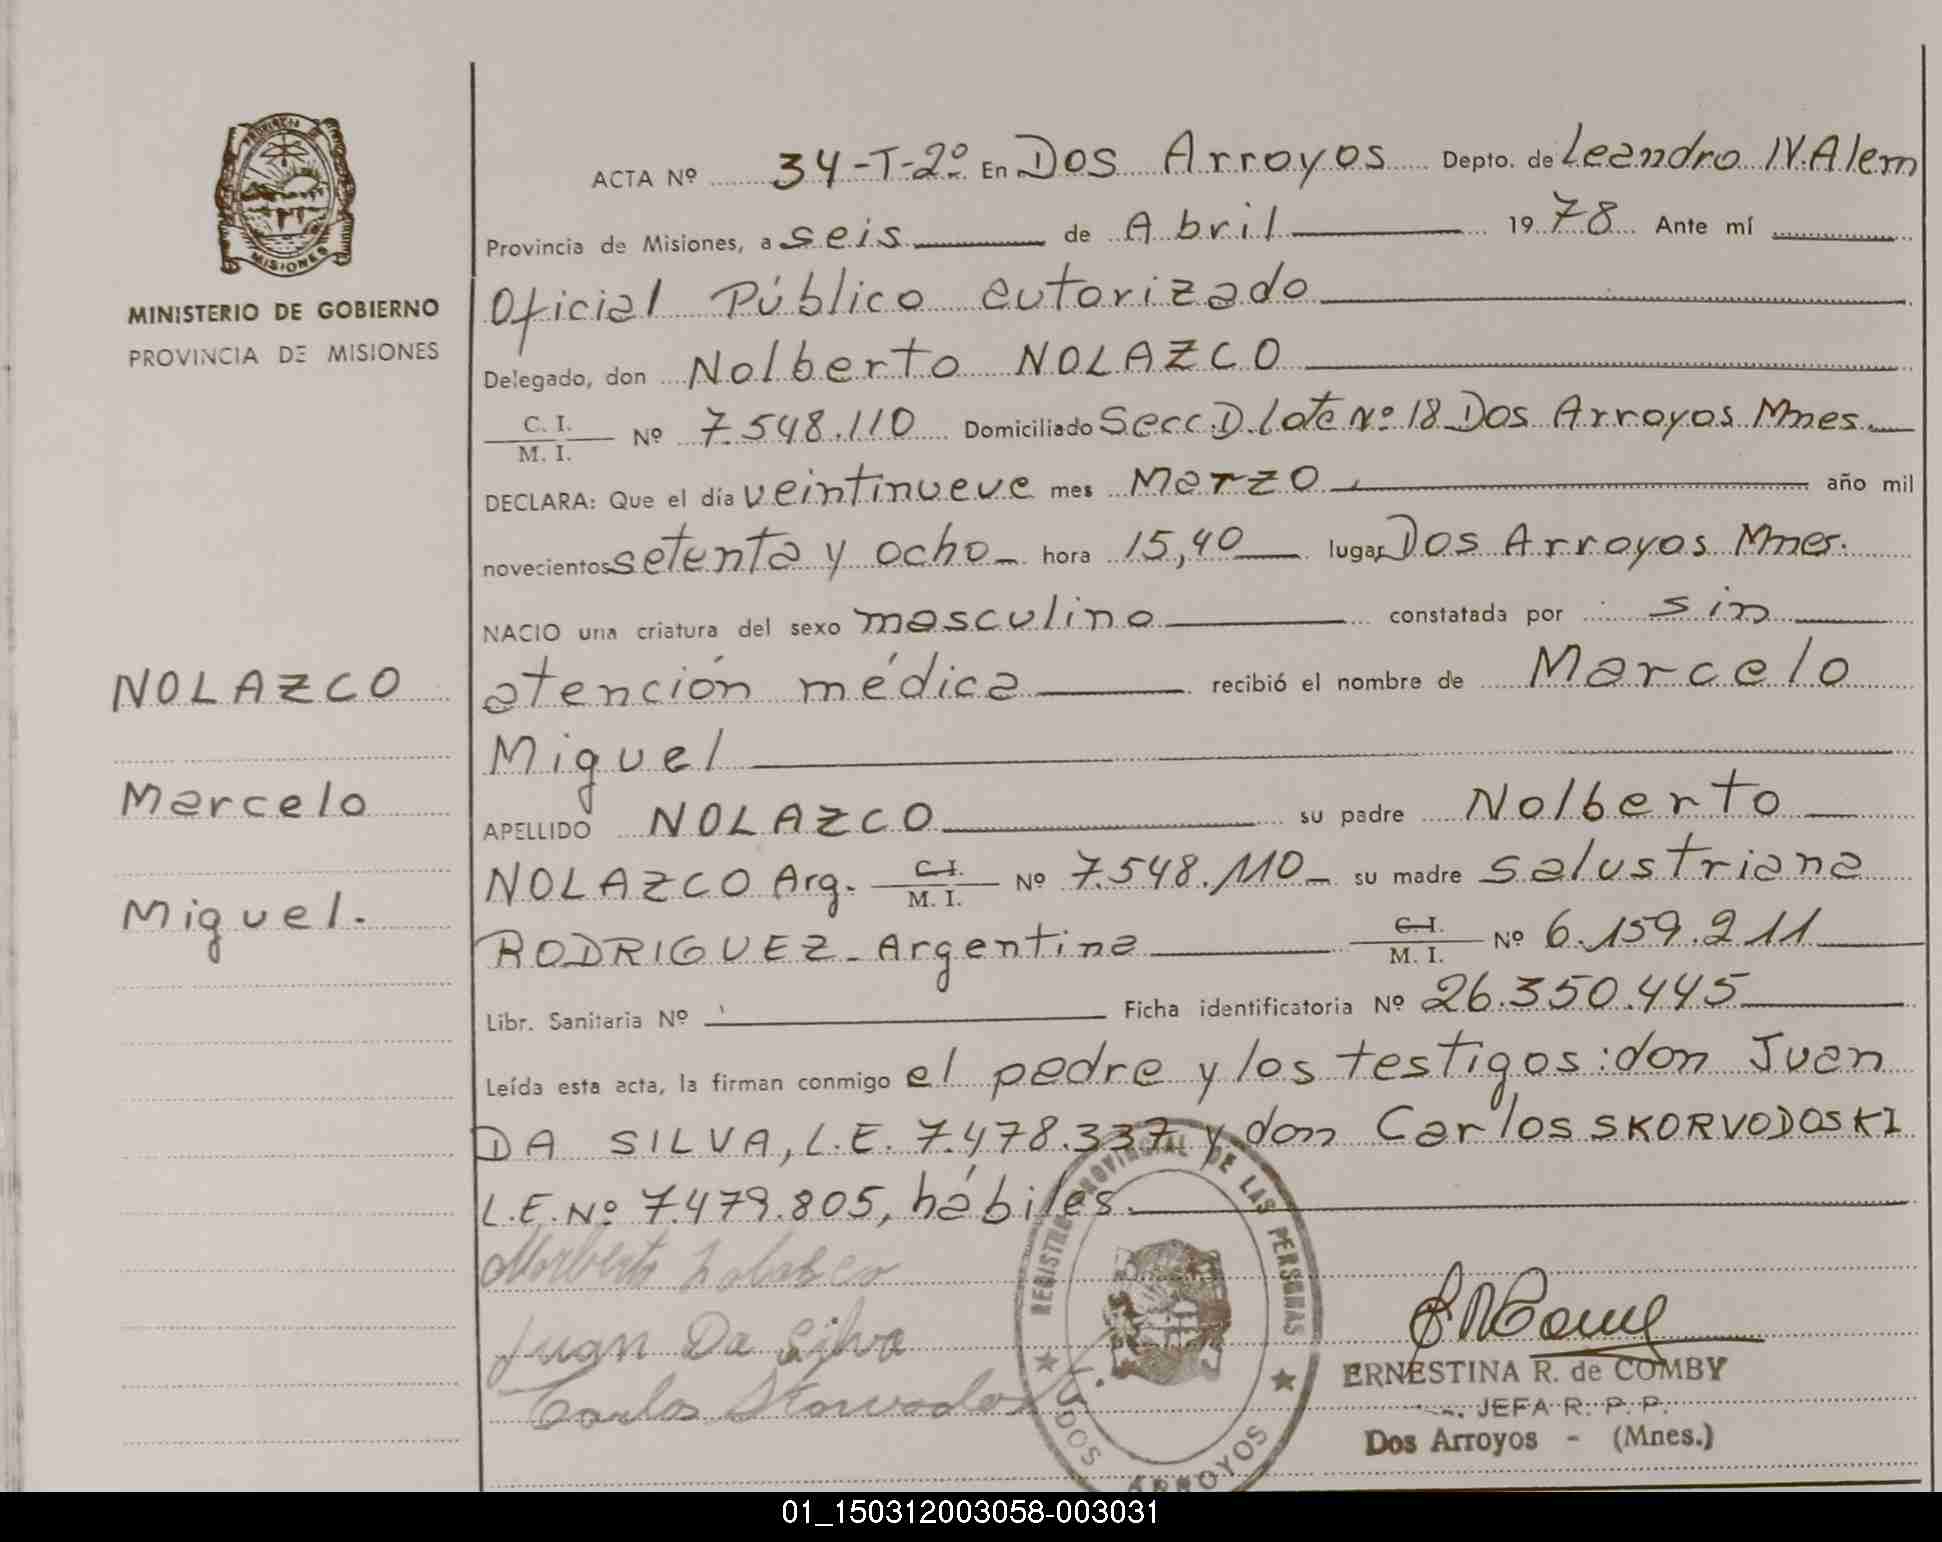 PROVINCIA DE
MISIONES
MINISTERIO DE GOBIERNO
PROVINCIA DE MISIONES
NOLAZCO
Marcelo
Miguel.
ACTA Nº 34-T-2º En Dos Arroyos Depto. de Leandro N. Alem
Provincia de Misiones, a seis de Abril 1978 Ante mí
Oficial Público autorizado
Delegado, don Nolberto NOLAZCO
C. I. / M. I. Nº 7.548.110 Domiciliado Secc. D. lote Nº 18 Dos Arroyos Mnes.
DECLARA: Que el día veintinueve mes Marzo año mil
novecientos setenta y ocho hora 15,40 lugar Dos Arroyos Mnes.
NACIO una criatura del sexo masculino constatada por sin
atención médica recibió el nombre de Marcelo
Miguel
APELLIDO NOLAZCO su padre Nolberto
NOLAZCO Arg. C. I. / M. I. Nº 7.548.110 su madre Salustriana
RODRIGUEZ Argentina C. I. / M. I. Nº 6.159.211
Libr. Sanitaria Nº Ficha identificatoria Nº 26.350.445
Leída esta acta, la firman conmigo el padre y los testigos: don Juan
DA SILVA, L.E. 7.478.337 y don Carlos SKORVODOSKI
L.E. Nº 7.479.805, hábiles.
REGISTRO PROVINCIAL DE LAS PERSONAS
DOS ARROYOS
Juan Da Silva
Carlos
ERNESTINA R. de COMBY
JEFA R. P. P.
Dos Arroyos - (Mnes.)
01_150312003058-003031